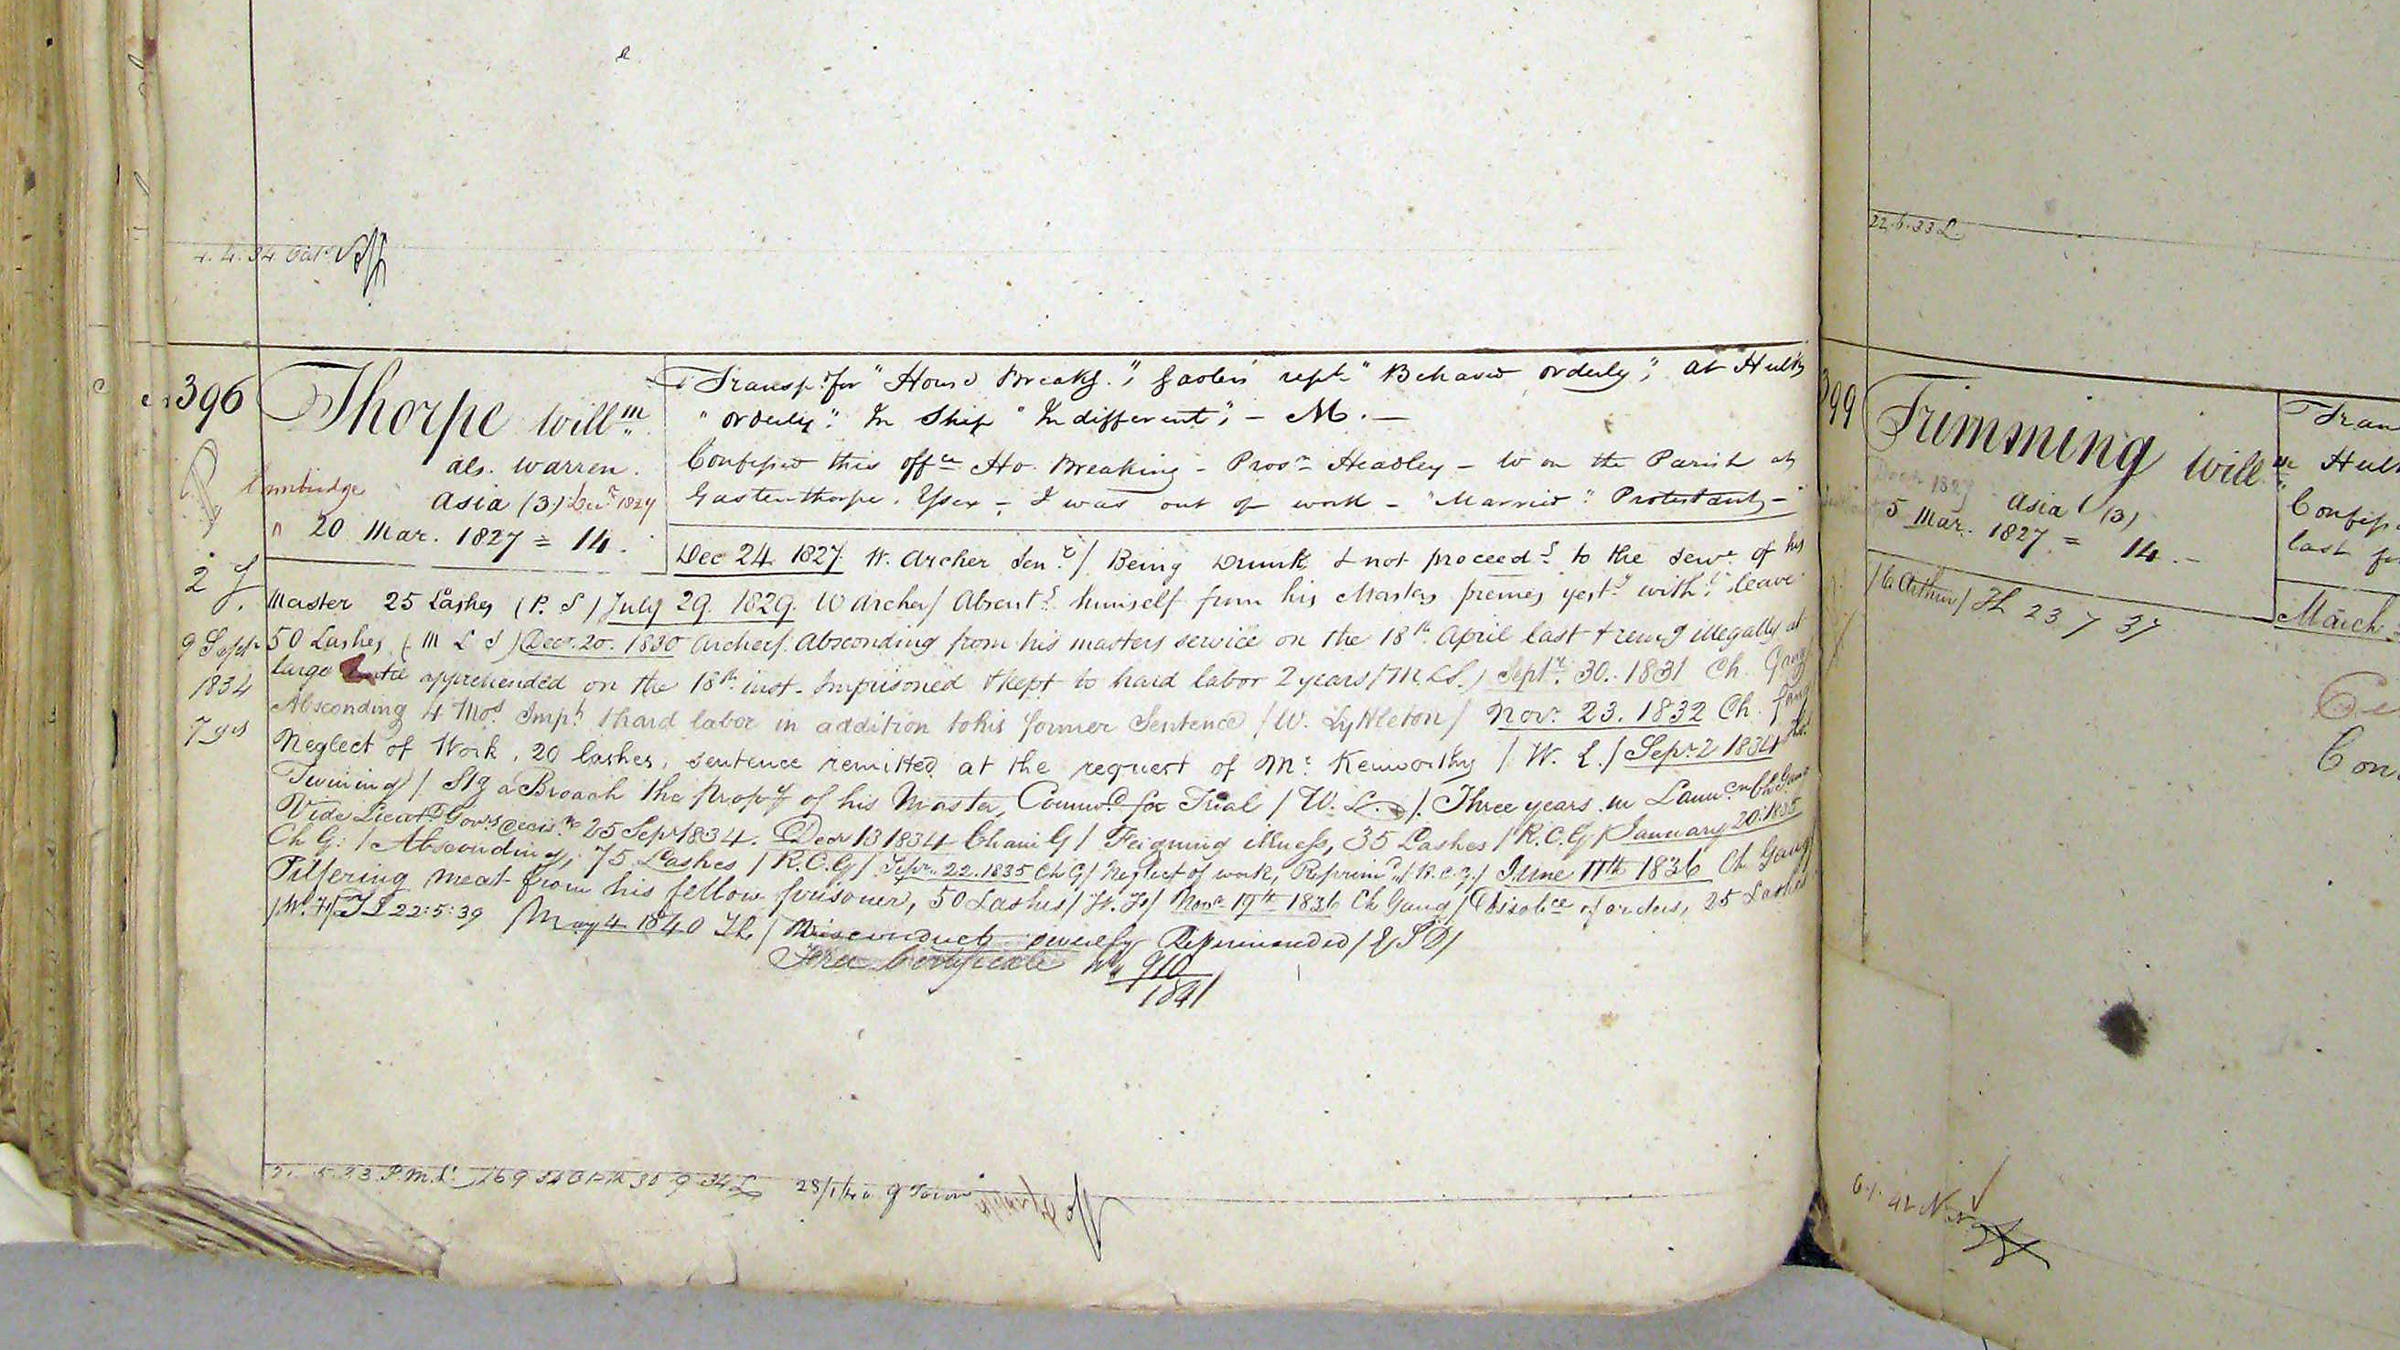 396
Thorpe Willm
als. Warren.
Cambridge
Asia (3) Decr 1827
20 Mar. 1827 = 14.
2 J.
9 Septr
1834
7 yrs
Transp.d for "House Breakg.", Gaolers rept "Behaved orderly", at Hulk
"orderly". In Ship "Indifferent", – M. –
Confessed this offce Ho. Breaking – Prosr Headley – W on the Parish at
Gastenthorpe. Essex – I was out of work – "Married" Protestant –
Dec 24 1827 W. Archer Senr / Being Drunk & not proceedg to the serve of his
Master 25 Lashes (P. S) July 29. 1829. W Archer / Absentg himself from his Masters premes yesty witht leave
50 Lashes (M L S) Decr. 20. 1830 Archer / Absconding from his masters service on the 18th April last & remg illegally at
large apprehended on the 18th inst. Imprisoned & kept to hard labor 2 years / M. L S. / Septr. 30. 1831 Ch. Gang
Absconding 4 Mos. Impt & hard labor in addition to his former Sentence / W. Lyttleton / Novr. 23. 1832 Ch. Gang
Neglect of Work, 20 lashes, sentence remitted at the request of Mr Kenworthy / W. L. / Sepr 2 1834
Twining / Stg a Broach the propy of his Master, Commd for Trial / W. L. / Three years in Launcn Ch Gang
Vide Lieut Govrs Decisn 25 Sepr 1834. Decr 13 1834 Chain G / Feigning illness, 35 Lashes / R. C. G / January 20: 1835
Ch G: / Absconding, 75 Lashes / R. C. G / Sepr. 22. 1835 Ch G / Neglect of work, Reprimd / R. C. G. / June 11th 1836 Ch Gang
Pilfering meat from his fellow prisoner, 50 Lashes / W. F. / Novr 19th 1836 Ch Gang / Disobce of orders, 25 Lashes
/ W. F / TL 22:5:39 / May 4 1840 TL / Misconduct severely Reprimanded / E S D /
Free Certificate No 910
1841
399
Trimming Will
Asia (3)
5 Mar. 1827 = 14. –
McArthur / TL 23 7 37
Tran
Hulk
Confess
last for
March
Con
22.6.33 L